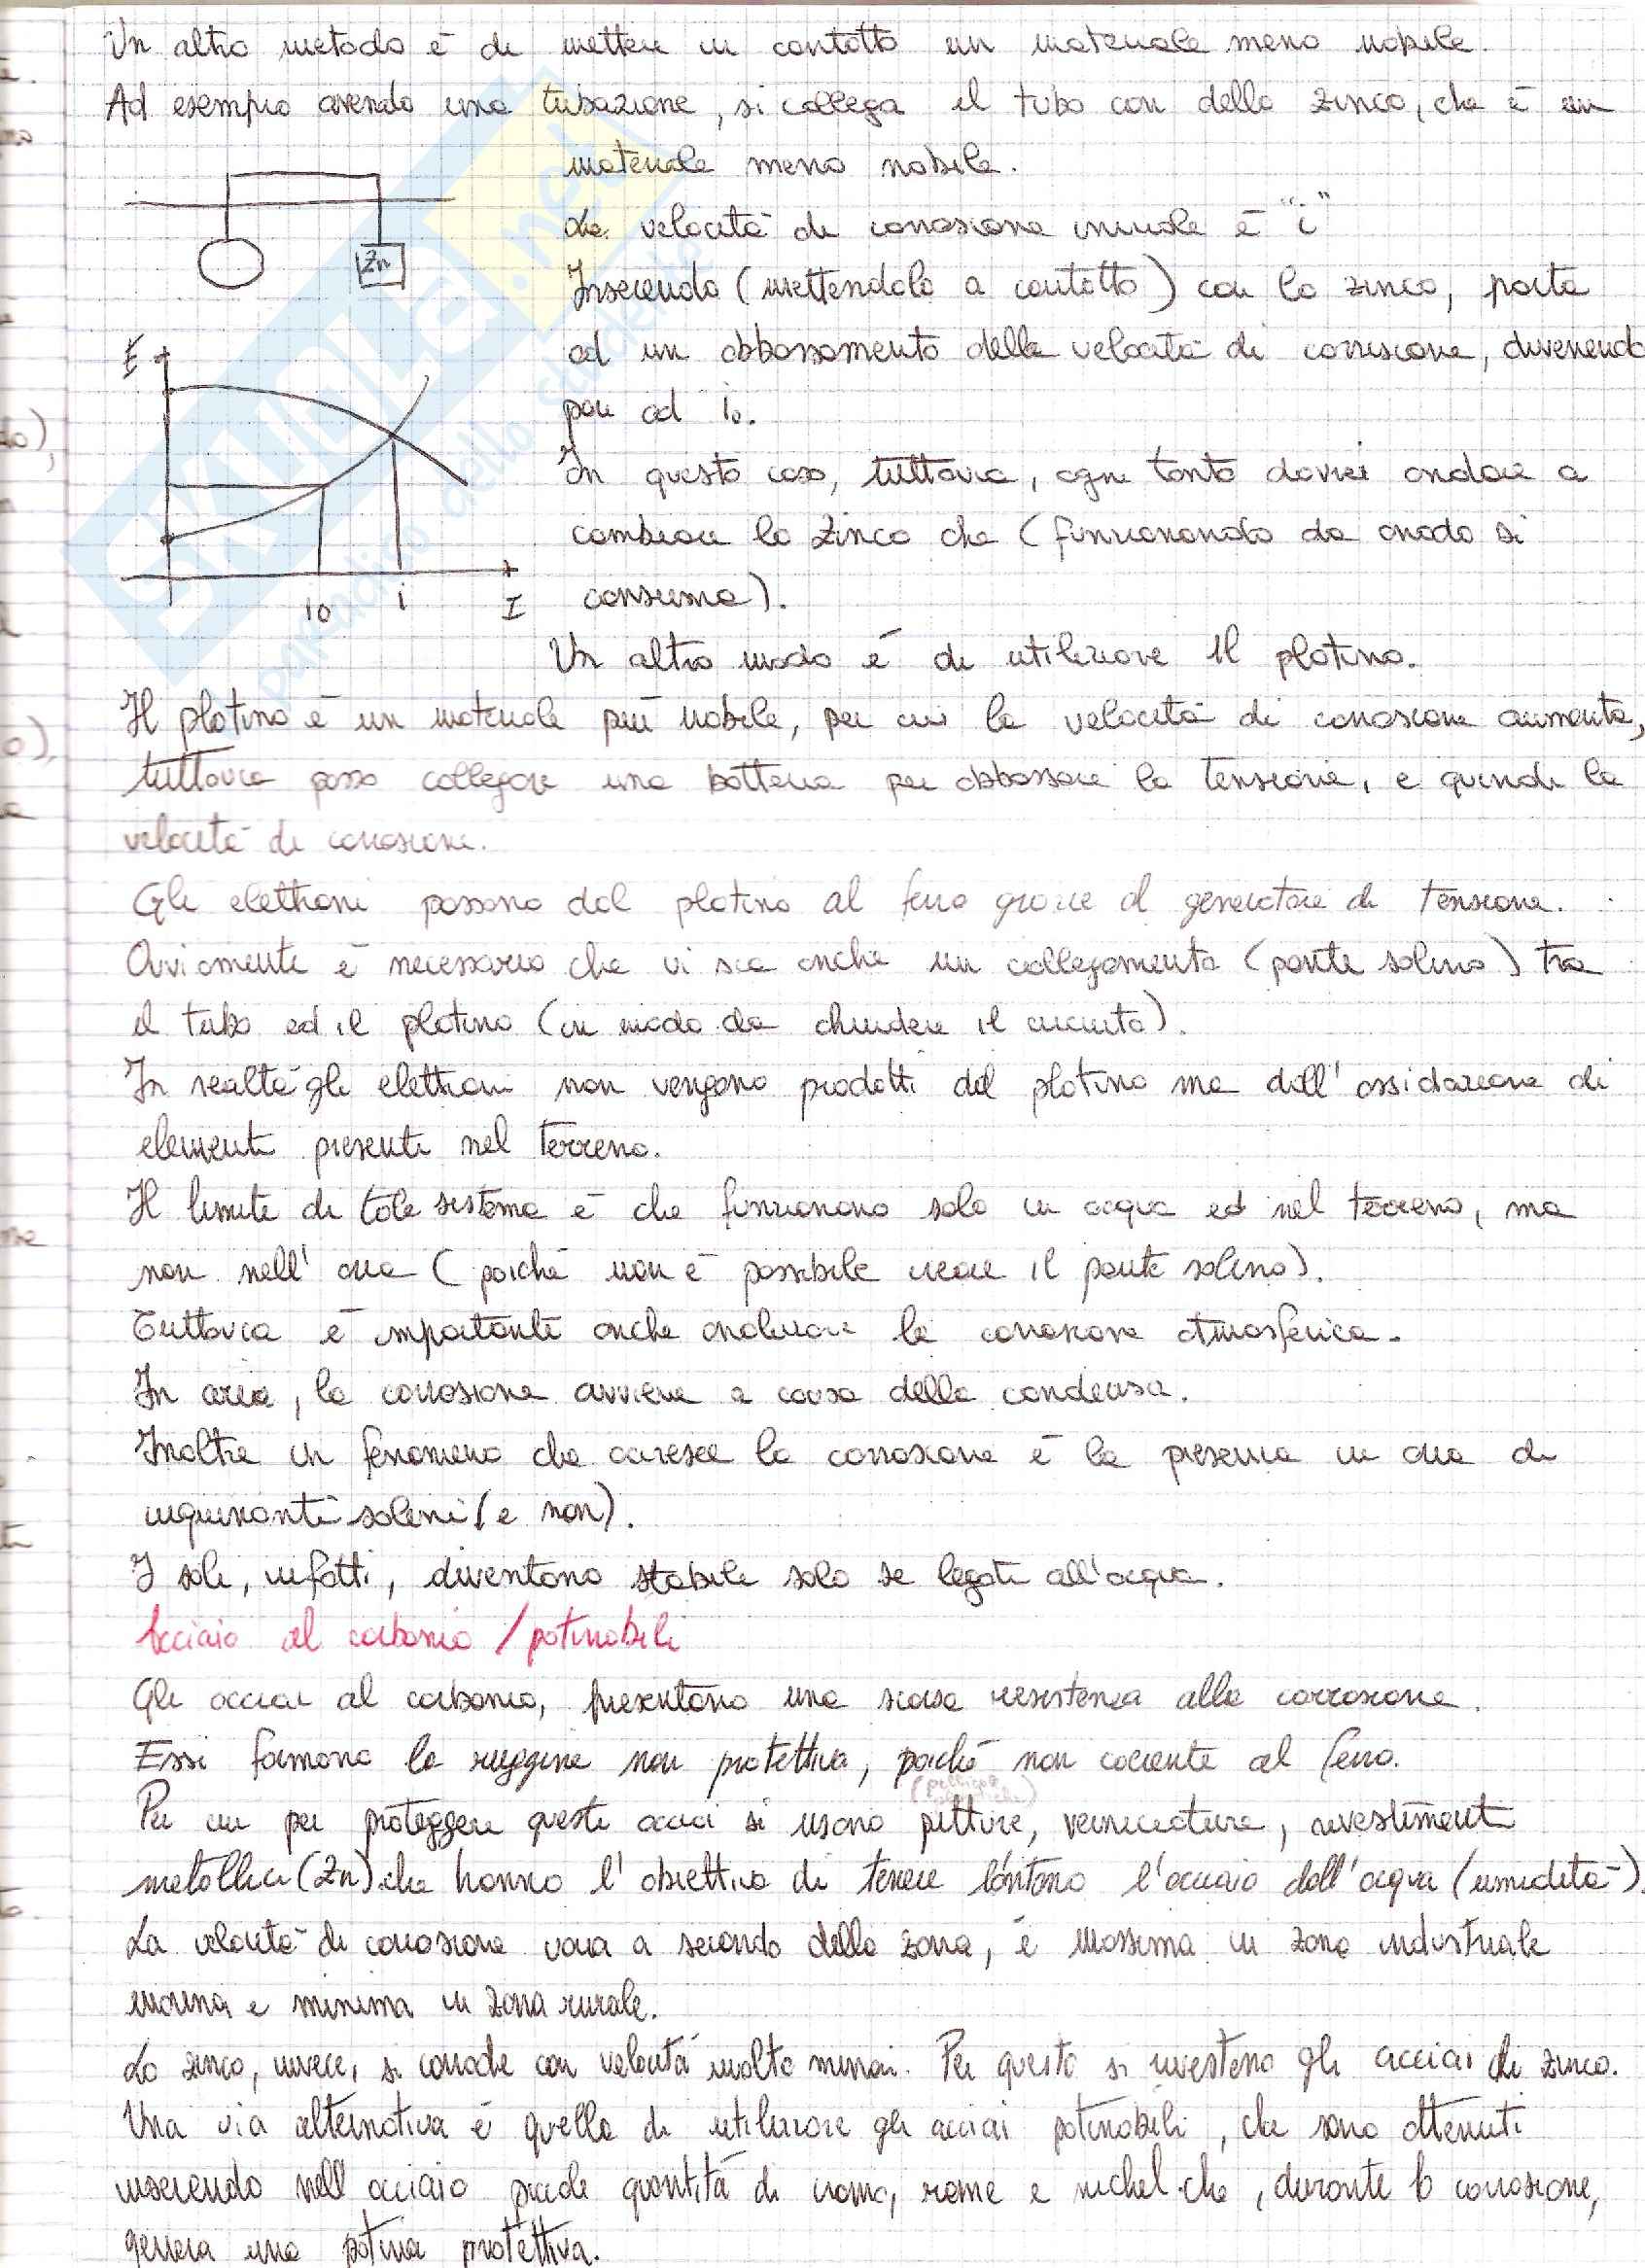 Un altro metodo è di mettere in contatto un materiale meno nobile.
Ad esempio avendo una tubazione, si collega il tubo con dello zinco, che è un
materiale meno nobile.
La velocità di corrosione iniziale è "i"
Inserendo (mettendolo a contatto) con lo zinco, porta
ad un abbassamento della velocità di corrosione, divenendo
pari ad i₀.
In questo caso, tuttavia, ogni tanto dovrei andare a
cambiare lo zinco che (funzionando da anodo si
consuma).
Zn
E
i₀
i
I
Un altro modo è di utilizzare il platino.
Il platino è un materiale più nobile, per cui la velocità di corrosione aumenta,
tuttavia posso collegare una batteria per abbassare la tensione, e quindi la
velocità di corrosione.
Gli elettroni passano dal platino al ferro grazie al generatore di tensione.
Ovviamente è necessario che vi sia anche un collegamento (ponte salino) tra
il tubo ed il platino (in modo da chiudere il circuito).
In realtà gli elettroni non vengono prodotti dal platino ma dall'ossidazione di
elementi presenti nel terreno.
Il limite di tale sistema è che funzionano solo in acqua ed nel terreno, ma
non nell'aria (poiché non è possibile creare il ponte salino).
Tuttavia è importante anche analizzare la corrosione atmosferica.
In aria, la corrosione avviene a causa della condensa.
Inoltre un fenomeno che accresce la corrosione è la presenza in aria di
inquinanti salini (e non).
I sali, infatti, diventano stabili solo se legati all'acqua.
Acciaio al carbonio / patinabili
Gli acciai al carbonio, presentano una scarsa resistenza alla corrosione.
Essi formano la ruggine non protettiva, poiché non coerente al ferro.
Per cui per proteggere questi acciai si usano pitture, verniciature, rivestimenti
metallici (Zn) che hanno l'obiettivo di tenere lontano l'acciaio dall'acqua (umidità).
La velocità di corrosione varia a seconda della zona, è massima in zona industriale
marina e minima in zona rurale.
Lo zinco, invece, si corrode con velocità molto minori. Per questo si rivestono gli acciai di zinco.
Una via alternativa è quella di utilizzare gli acciai patinabili, che sono ottenuti
inserendo nell'acciaio piccole quantità di cromo, rame e nichel che, durante la corrosione,
genera una patina protettiva.